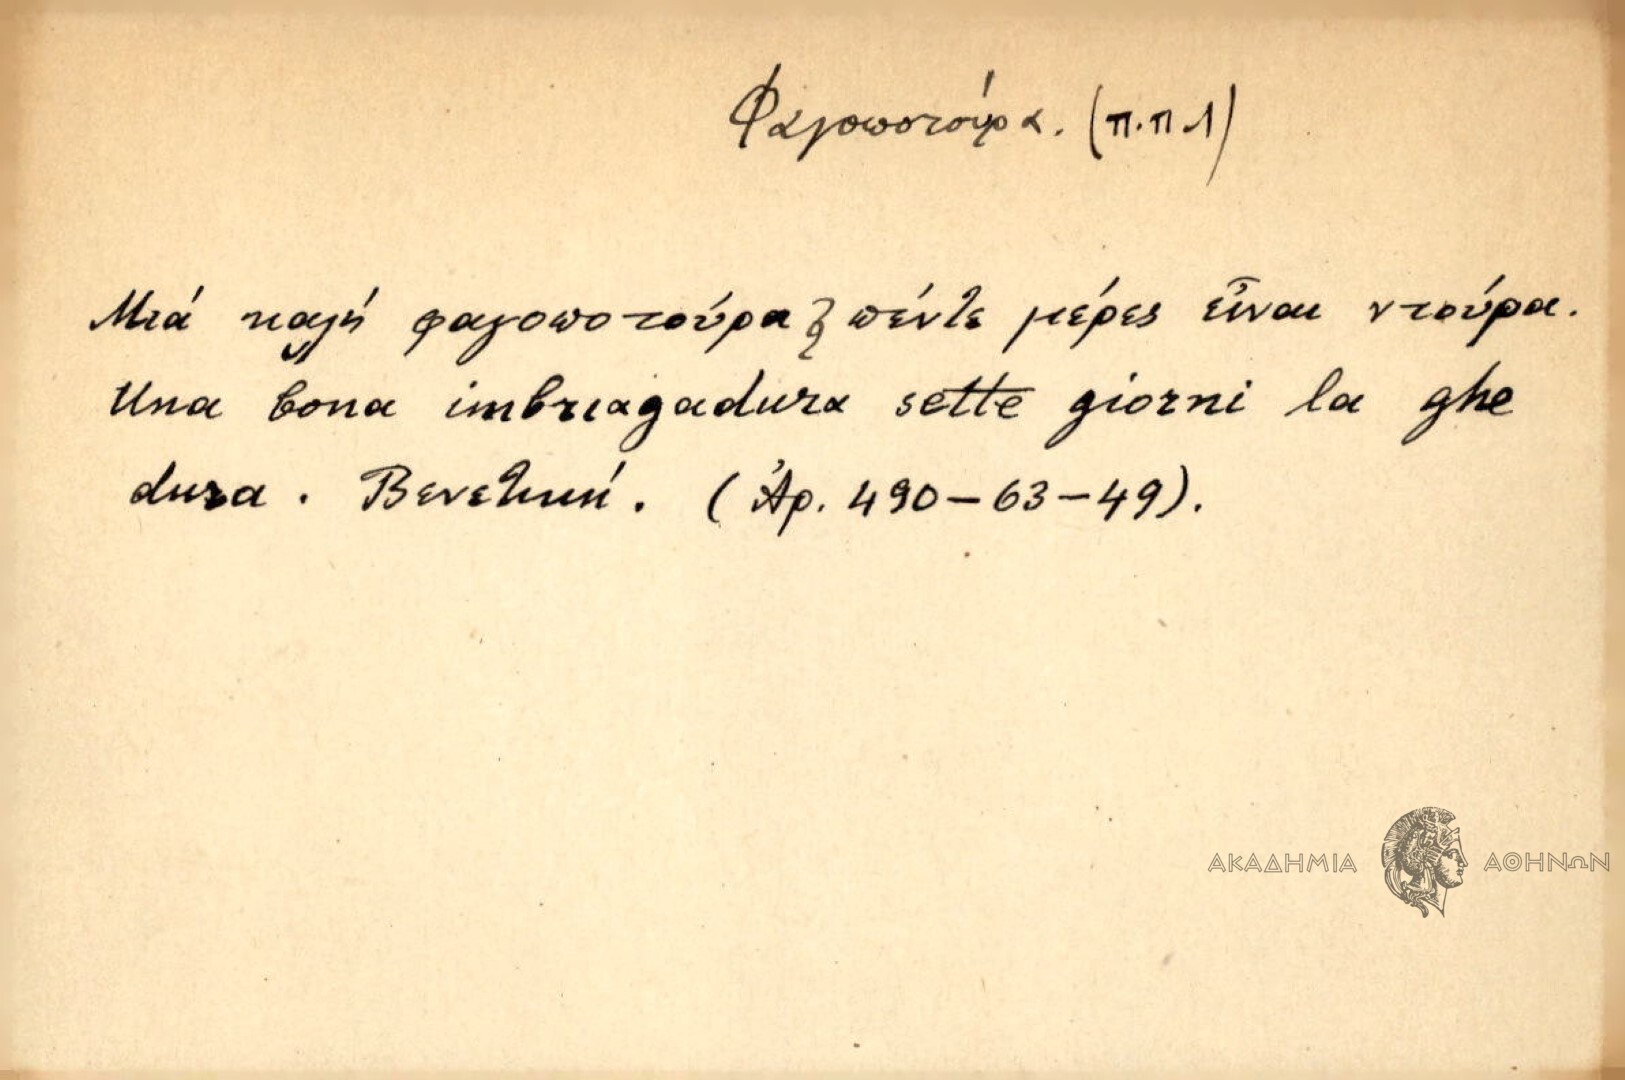 Φαγοποτούρα. (π.π.Λ)
Μιά καλή φαγοποτούρα πέντε μέρες εἶναι ντούρα.
Una bona imbriagadura sette giorni la ghe
dura. Βενετική. (Ἀρ. 490-63-49).
ΑΚΑΔΗΜΙΑ ΑΘΗΝΩΝ